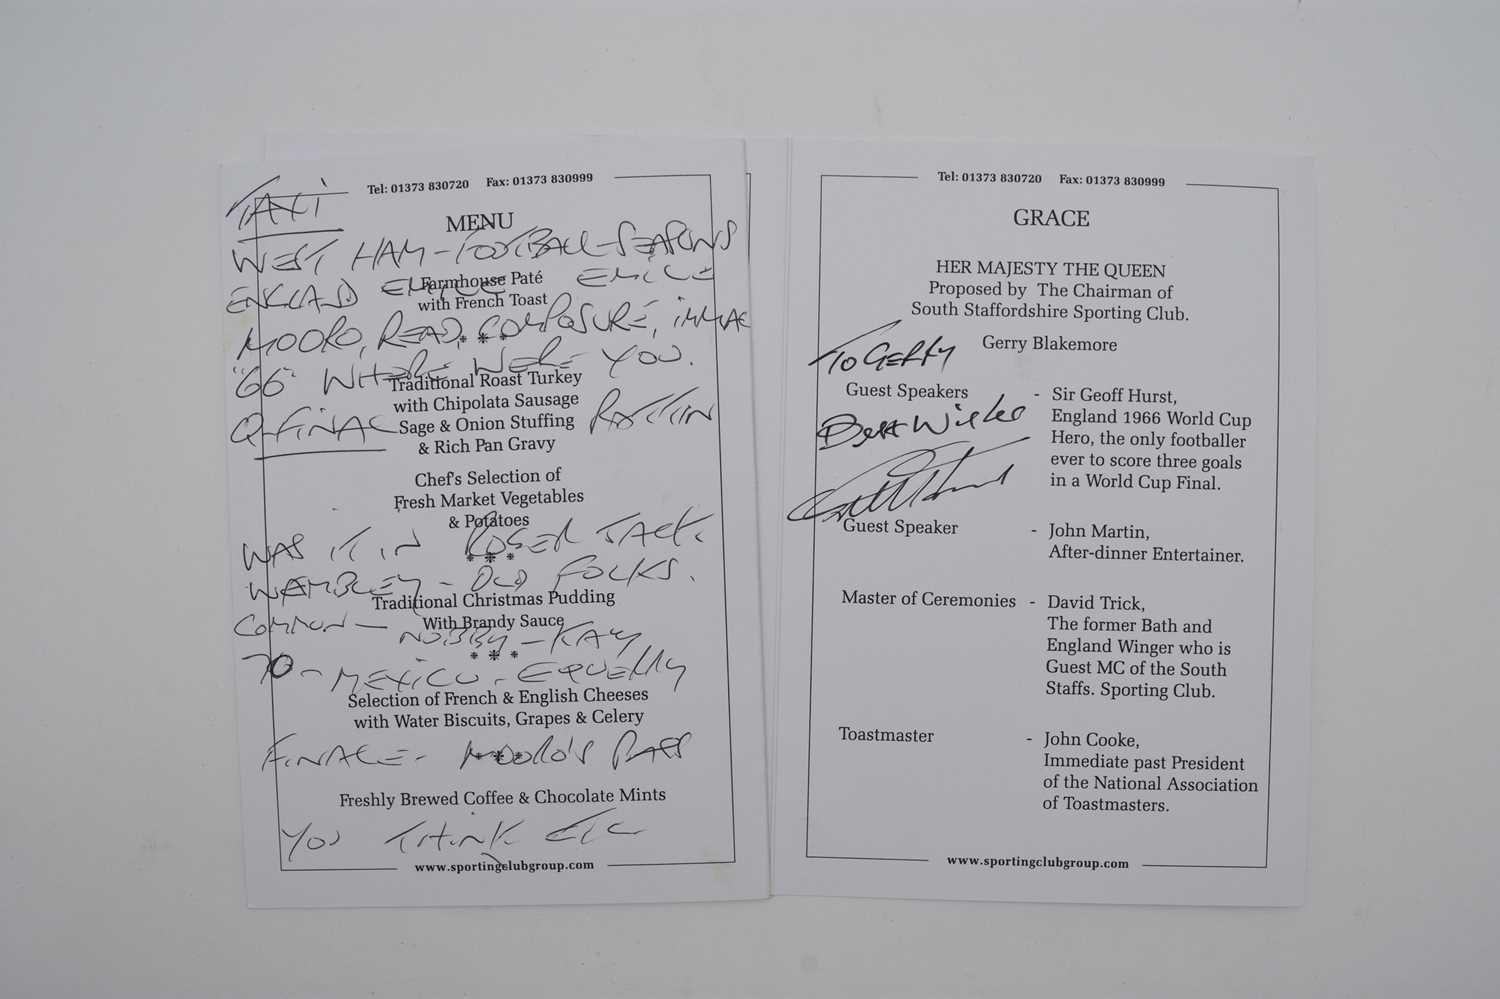 Tel: 01373 830720 Fax: 01373 830999
TAXI
MENU
WEST HAM - FOOTBALL - SEASONS
Farmhouse Paté
ENGLAND EMILE EMILE
with French Toast
MOORO, READ, COMPOSURE, IMMAC
"66" WHERE WERE YOU.
Traditional Roast Turkey
with Chipolata Sausage
Q-FINAL
Sage & Onion Stuffing
& Rich Pan Gravy
Chef's Selection of
Fresh Market Vegetables
& Potatoes
WAS IT IN ROGER JACK.
WAMBLEY - OLD FOLKS.
Traditional Christmas Pudding
With Brandy Sauce
COMMON - NOBBY - KAY
70 - MEXICO - EQUERRY
Selection of French & English Cheeses
with Water Biscuits, Grapes & Celery
FINALE - MOORO'S PASS
Freshly Brewed Coffee & Chocolate Mints
YOU THINK ETC
www.sportingclubgroup.com
Tel: 01373 830720 Fax: 01373 830999
GRACE
HER MAJESTY THE QUEEN
Proposed by The Chairman of
South Staffordshire Sporting Club.
Gerry Blakemore
TO GERRY
Guest Speakers - Sir Geoff Hurst,
England 1966 World Cup
Best Wishes
Hero, the only footballer
ever to score three goals
in a World Cup Final.
Guest Speaker - John Martin,
After-dinner Entertainer.
Master of Ceremonies - David Trick,
The former Bath and
England Winger who is
Guest MC of the South
Staffs. Sporting Club.
Toastmaster - John Cooke,
Immediate past President
of the National Association
of Toastmasters.
www.sportingclubgroup.com